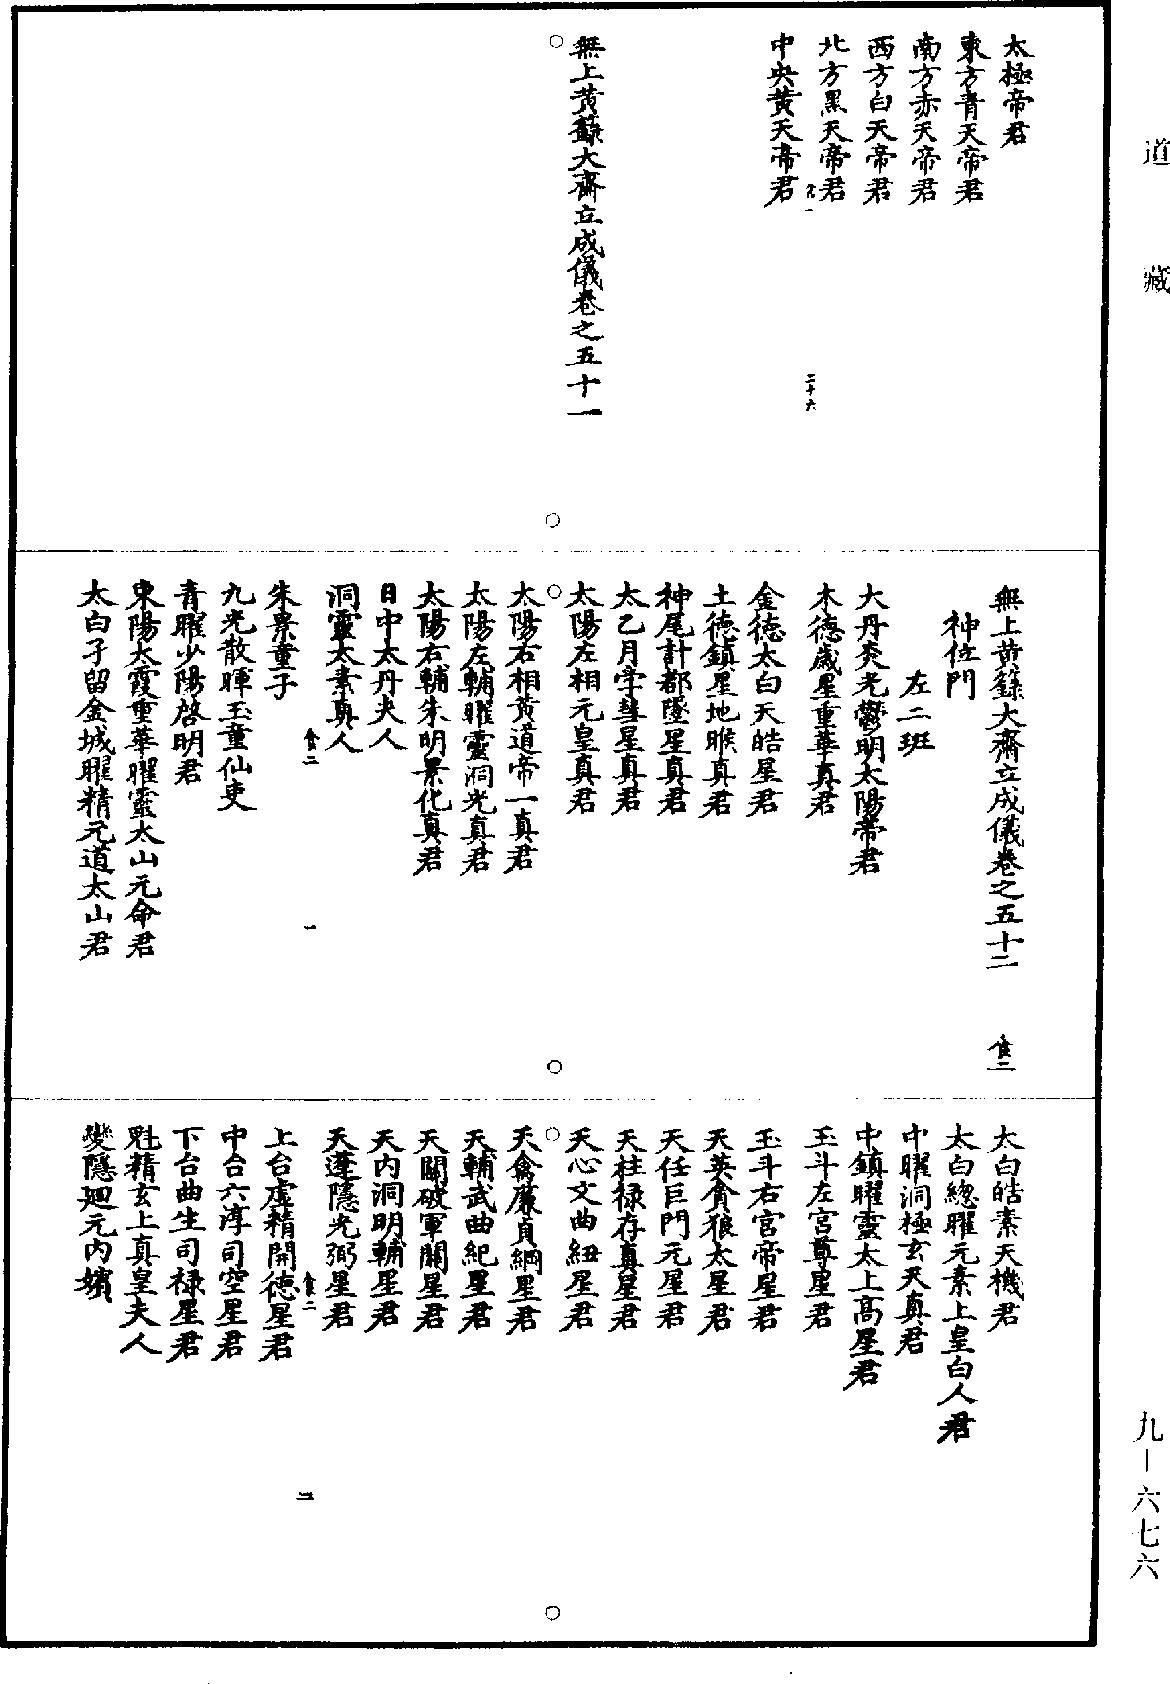 道藏
太極帝君
東方青天帝君
南方赤天帝君
西方白天帝君
北方黑天帝君
二十六
中央黃天帝君
無上黃籙大齋立成儀卷之五十一
無上黃籙大齋立成儀卷之五十二
神位門
左二班
大丹炎光鬱明太陽帝君
木德歲星重華真君
金德太白天皓星君
土德鎮星地睺真君
神尾計都墜星真君
太乙月孛彗星真君
太陽左相元皇真君
太陽右相黃道帝一真君
太陽左輔曜靈洞光真君
太陽右輔朱明景化真君
日中太丹夫人
洞靈太素真人
一
朱景童子
九光散暉玉童仙吏
青曜少陽啓明君
東陽大霞重華曜靈太山元命君
太白子留金城曜精元道太山君
太白皓素天機君
太白總曜元素上皇白人君
中曜洞極玄天真君
中鎮曜靈太上高星君
玉斗左宮尊星君
玉斗右宮帝星君
天英貪狼太星君
天任巨門元星君
天柱祿存真星君
天心文曲紐星君
天禽廉貞綱星君
天輔武曲紀星君
天關破軍關星君
天內洞明輔星君
天蓬隱光弼星君
二
上台虛精開德星君
中台六淳司空星君
下台曲生司祿星君
魁精玄上真皇夫人
變隱迴元內嬪
九—六七六